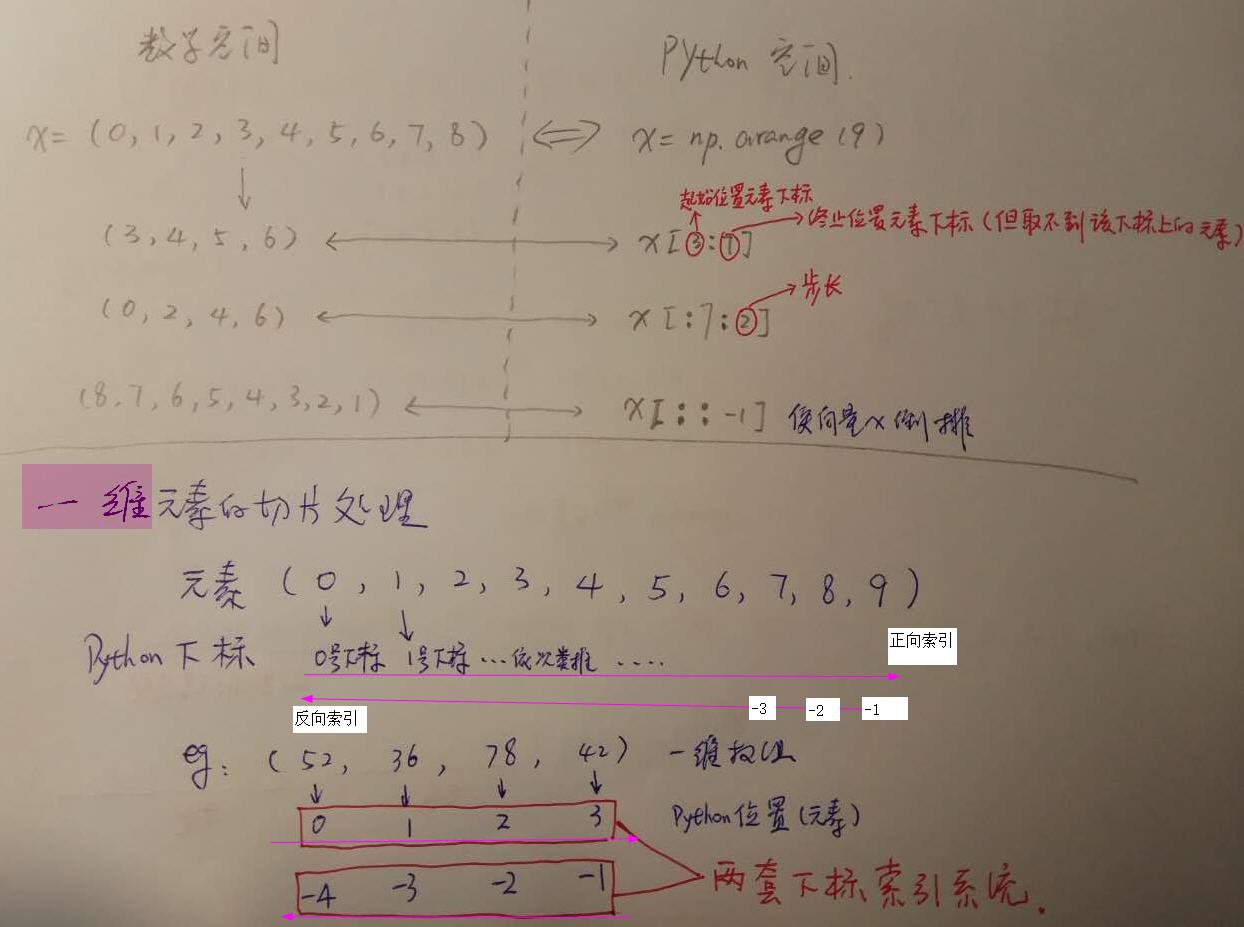 数学空间
Python 空间.
x= (0, 1, 2, 3, 4, 5, 6, 7, 8) ⟺ x= np.arange(9)
起始位置元素下标
(3, 4, 5, 6) ⟷ x[3:7] → 终止位置元素下标(但取不到该下标上的元素)
(0, 2, 4, 6) ⟷ x[:7:2] → 步长
(8,7,6,5,4,3,2,1) ⟷ x[::-1] 向量x倒排
一维元素的切片处理
元素 (0, 1, 2, 3, 4, 5, 6, 7, 8, 9)
Python下标 0号下标 1号下标 ...依次类推 ....
正向索引
-3 -2 -1
反向索引
eg: (52, 36, 78, 42) 一维数组
0 1 2 3 Python位置(元素)
-4 -3 -2 -1 两套下标索引系统.